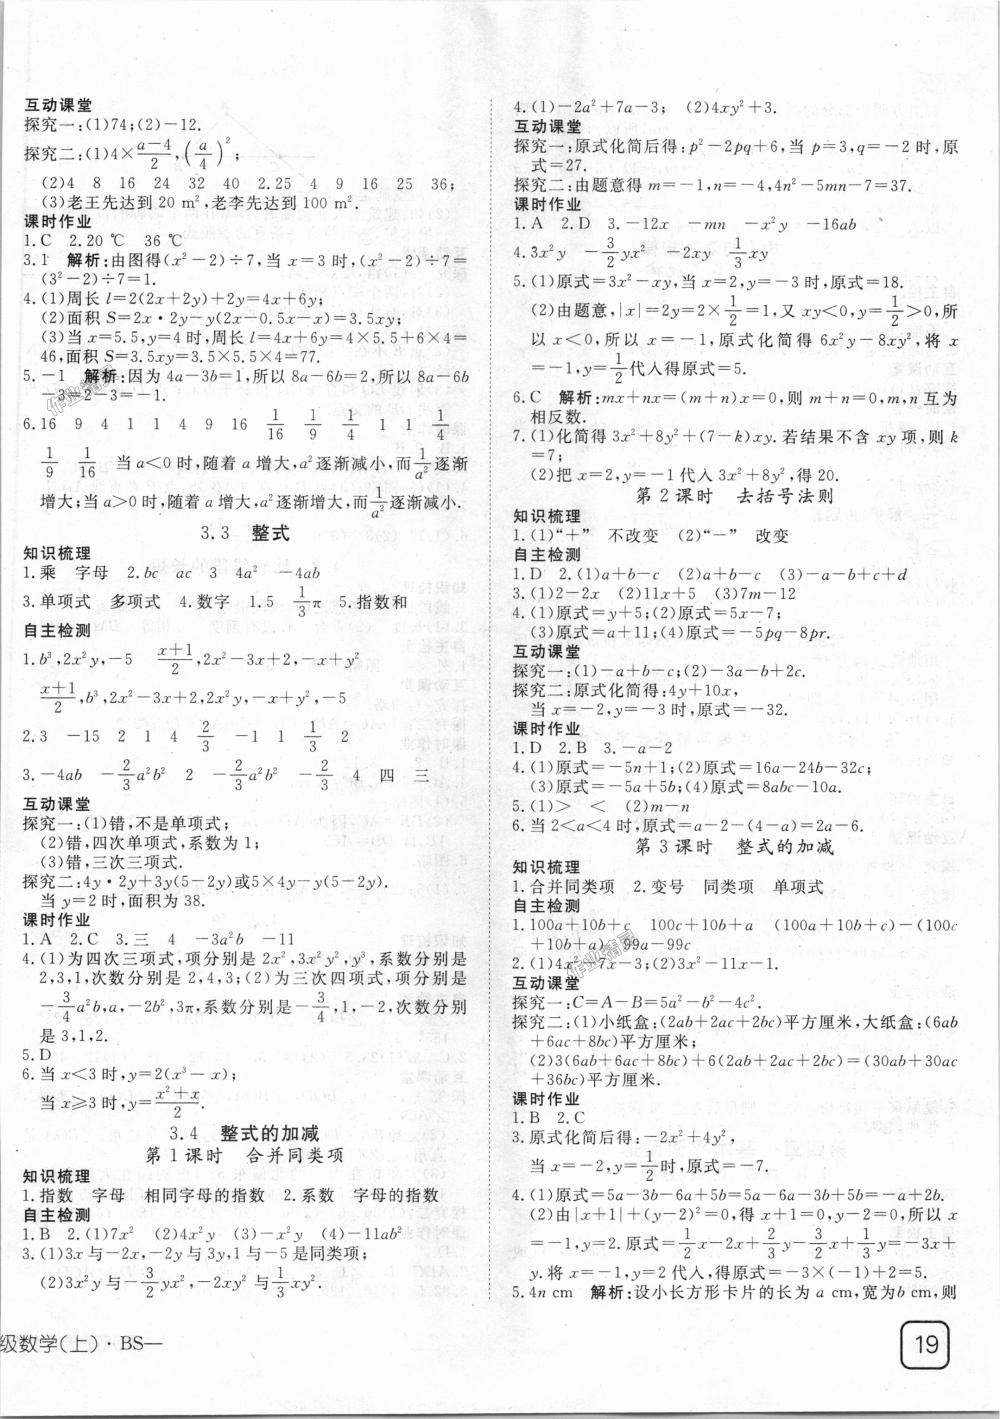 互动课堂
探究一:(1)74;(2)-12.
探究二:(1)4×\frac{a-4}{2},(\frac{a}{4})^2;
(2)4 8 16 24 32 40 2.25 4 9 16 25 36;
(3)老王先达到20 m²,老李先达到100 m².
课时作业
1.C 2.20 ℃ 36 ℃
3.1 解析:由图得(x²-2)÷7,当x=3时,(x²-2)÷7=
(3²-2)÷7=1.
4.(1)周长l=2(2x+2y)+2y=4x+6y;
(2)面积S=2x·2y-y(2x-0.5x-x)=3.5xy;
(3)当x=5.5,y=4时,周长l=4x+6y=4×5.5+6×4=
46,面积S=3.5xy=3.5×5.5×4=77.
5.-1 解析:因为4a-3b=1,所以8a-6b=2,所以8a-6b
-3=2-3=-1.
6.16 9 4 1 1 4 9 16 \frac{1}{16} \frac{1}{9} \frac{1}{4} 1 1 \frac{1}{4}
\frac{1}{9} \frac{1}{16} 当a<0时,随着a增大,a²逐渐减小,而\frac{1}{a²}逐渐
增大;当a>0时,随着a增大,a²逐渐增大,而\frac{1}{a²}逐渐减小.
3.3 整式
知识梳理
1.乘 字母 2.bc ac 3 4a² -4ab
3.单项式 多项式 4.数字 1.5 \frac{1}{3}π 5.指数和
自主检测
1.b³,2x²y,-5 \frac{x+1}{2},2x²-3x+2,-x+y²
\frac{x+1}{2},b³,2x²-3x+2,2x²y,-x+y²,-5
2.3 -15 2 1 4 \frac{2}{3} -1 1 \frac{1}{3} 2
3.-4ab -\frac{2}{3}a²b² 2 -\frac{2}{3}a²b² -\frac{2}{3} 4 四 三
互动课堂
探究一:(1)错,不是单项式;
(2)错,四次单项式,系数为1;
(3)错,三次三项式.
探究二:4y·2y+3y(5-2y)或5×4y-2y(5-2y).
当y=2时,面积为38.
课时作业
1.A 2.C 3.三 4 -3a²b -11
4.(1)为四次三项式,项分别是2x²,3x²y²,y³,系数分别是
2,3,1,次数分别是2,4,3;(2)为三次四项式,项分别是
-\frac{3}{4}a²b,a,-2b²,3π,系数分别是-\frac{3}{4},1,-2,次数分别
是3,1,2.
5.D
6.当x<3时,y=2(x³-x);
当x≥3时,y=\frac{x²+x}{2}.
3.4 整式的加减
第1课时 合并同类项
知识梳理
1.指数 字母 相同字母的指数 2.系数 字母的指数
自主检测
1.B 2.(1)7x² (2)4x² (3)-x²y (4)-11ab²
3.(1)3x与-2x,-2y与3y,1与-5是同类项;
(2)3x²y与-\frac{3}{2}yx²,-2xy²与\frac{1}{3}xy²是同类项.
级数学(上)·BS—
4.(1)-2a²+7a-3; (2)4xy²+3.
互动课堂
探究一:原式化简后得:p²-2pq+6,当p=3,q=-2时,原
式=27.
探究二:由题意得m=-1,n=-4,4n²-5mn-7=37.
课时作业
1.A 2.D 3.-12x -mn -x²y -16ab
4.3x²y -\frac{3}{2}yx² -2xy \frac{1}{3}xy
5.(1)原式=3x²-xy,当x=2,y=-3时,原式=18.
(2)由题意,|x|=2y=2×\frac{1}{2}=1,又xy<0,y=\frac{1}{2}>0,所
以x<0,所以x=-1,原式化简得6x²y-8xy²,将x
=-1,y=\frac{1}{2}代入得原式=5.
6.C 解析:mx+nx=(m+n)x=0,则m+n=0,m,n互为
相反数.
7.(1)化简得3x²+8y²+(7-k)xy.若结果不含xy项,则k
=7;
(2)把x=2,y=-1代入3x²+8y²,得20.
第2课时 去括号法则
知识梳理
1.(1)“+” 不改变 (2)“-” 改变
自主检测
1.D 2.(1)a+b-c (2)a-b+c (3)-a-b+c+d
3.(1)2-2x (2)11x+5 (3)7m-12
4.(1)原式=y+5;(2)原式=5x-7;
(3)原式=a+11;(4)原式=-5pq-8pr.
互动课堂
探究一:(1)-a+b-c;(2)-3a-b+2c.
探究二:原式化简得:4y+10x,
当x=-2,y=-3时,原式=-32.
课时作业
1.D 2.B 3.-a-2
4.(1)原式=-5n+1;(2)原式=16a-24b-32c;
(3)原式=-5a+5b;(4)原式=8abc-10a.
5.(1)> < (2)m-n
6.当2<a<4时,原式=a-2-(4-a)=2a-6.
第3课时 整式的加减
知识梳理
1.合并同类项 2.变号 同类项 单项式
自主检测
1.100a+10b+c 100c+10b+a (100a+10b+c)-(100c
+10b+a) 99a-99c
2.(1)4x²-7x-3;(2)3x²-11x-1.
互动课堂
探究一:C=A-B=5a²-b²-4c².
探究二:(1)小纸盒:(2ab+2ac+2bc)平方厘米,大纸盒:(6ab
+6ac+8bc)平方厘米;
(2)3(6ab+6ac+8bc)+6(2ab+2ac+2bc)=(30ab+30ac
+36bc)平方厘米.
课时作业
1.B 2.C
3.原式化简后得:-2x²+4y²,
当x=-2,y=-\frac{1}{2}时,原式=-7.
4.(1)原式=5a-3b-6a+5b=5a-6a-3b+5b=-a+2b.
(2)由|x+1|+(y-2)²=0得x+1=0,y-2=0,所以x
=-1,y=2.原式=\frac{1}{2}x-2x+\frac{2}{3}y-\frac{3}{2}x+\frac{1}{3}y=-3x+
y.将x=-1,y=2代入,得原式=-3×(-1)+2=5.
5.4n cm 解析:设小长方形卡片的长为a cm,宽为b cm,则
19